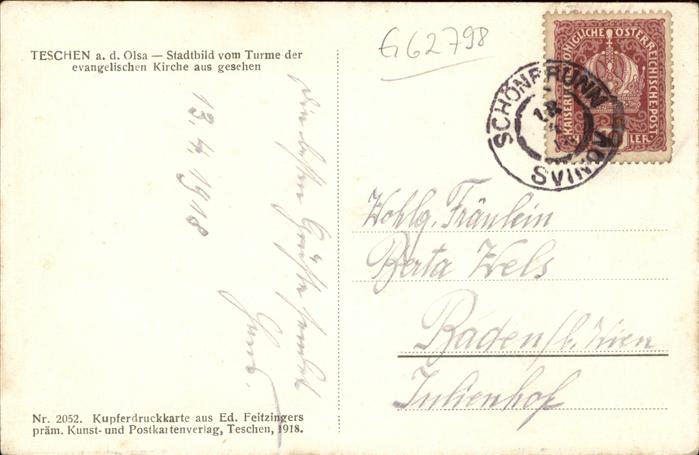 TESCHEN a. d. Olsa — Stadtbild vom Turme der
evangelischen Kirche aus gesehen
G62798
KAISERLICHE KÖNIGLICHE ÖSTERREICHISCHE POST
SCHÖNBRUNN
SVINOV
13. 4. 1918
Die besten Grüße sendet
Wohlg. Fräulein
Berta Wels
Baden b. Wien
Julienhof
Nr. 2052. Kupferdruckkarte aus Ed. Feitzingers
präm. Kunst- und Postkartenverlag, Teschen, 1918.